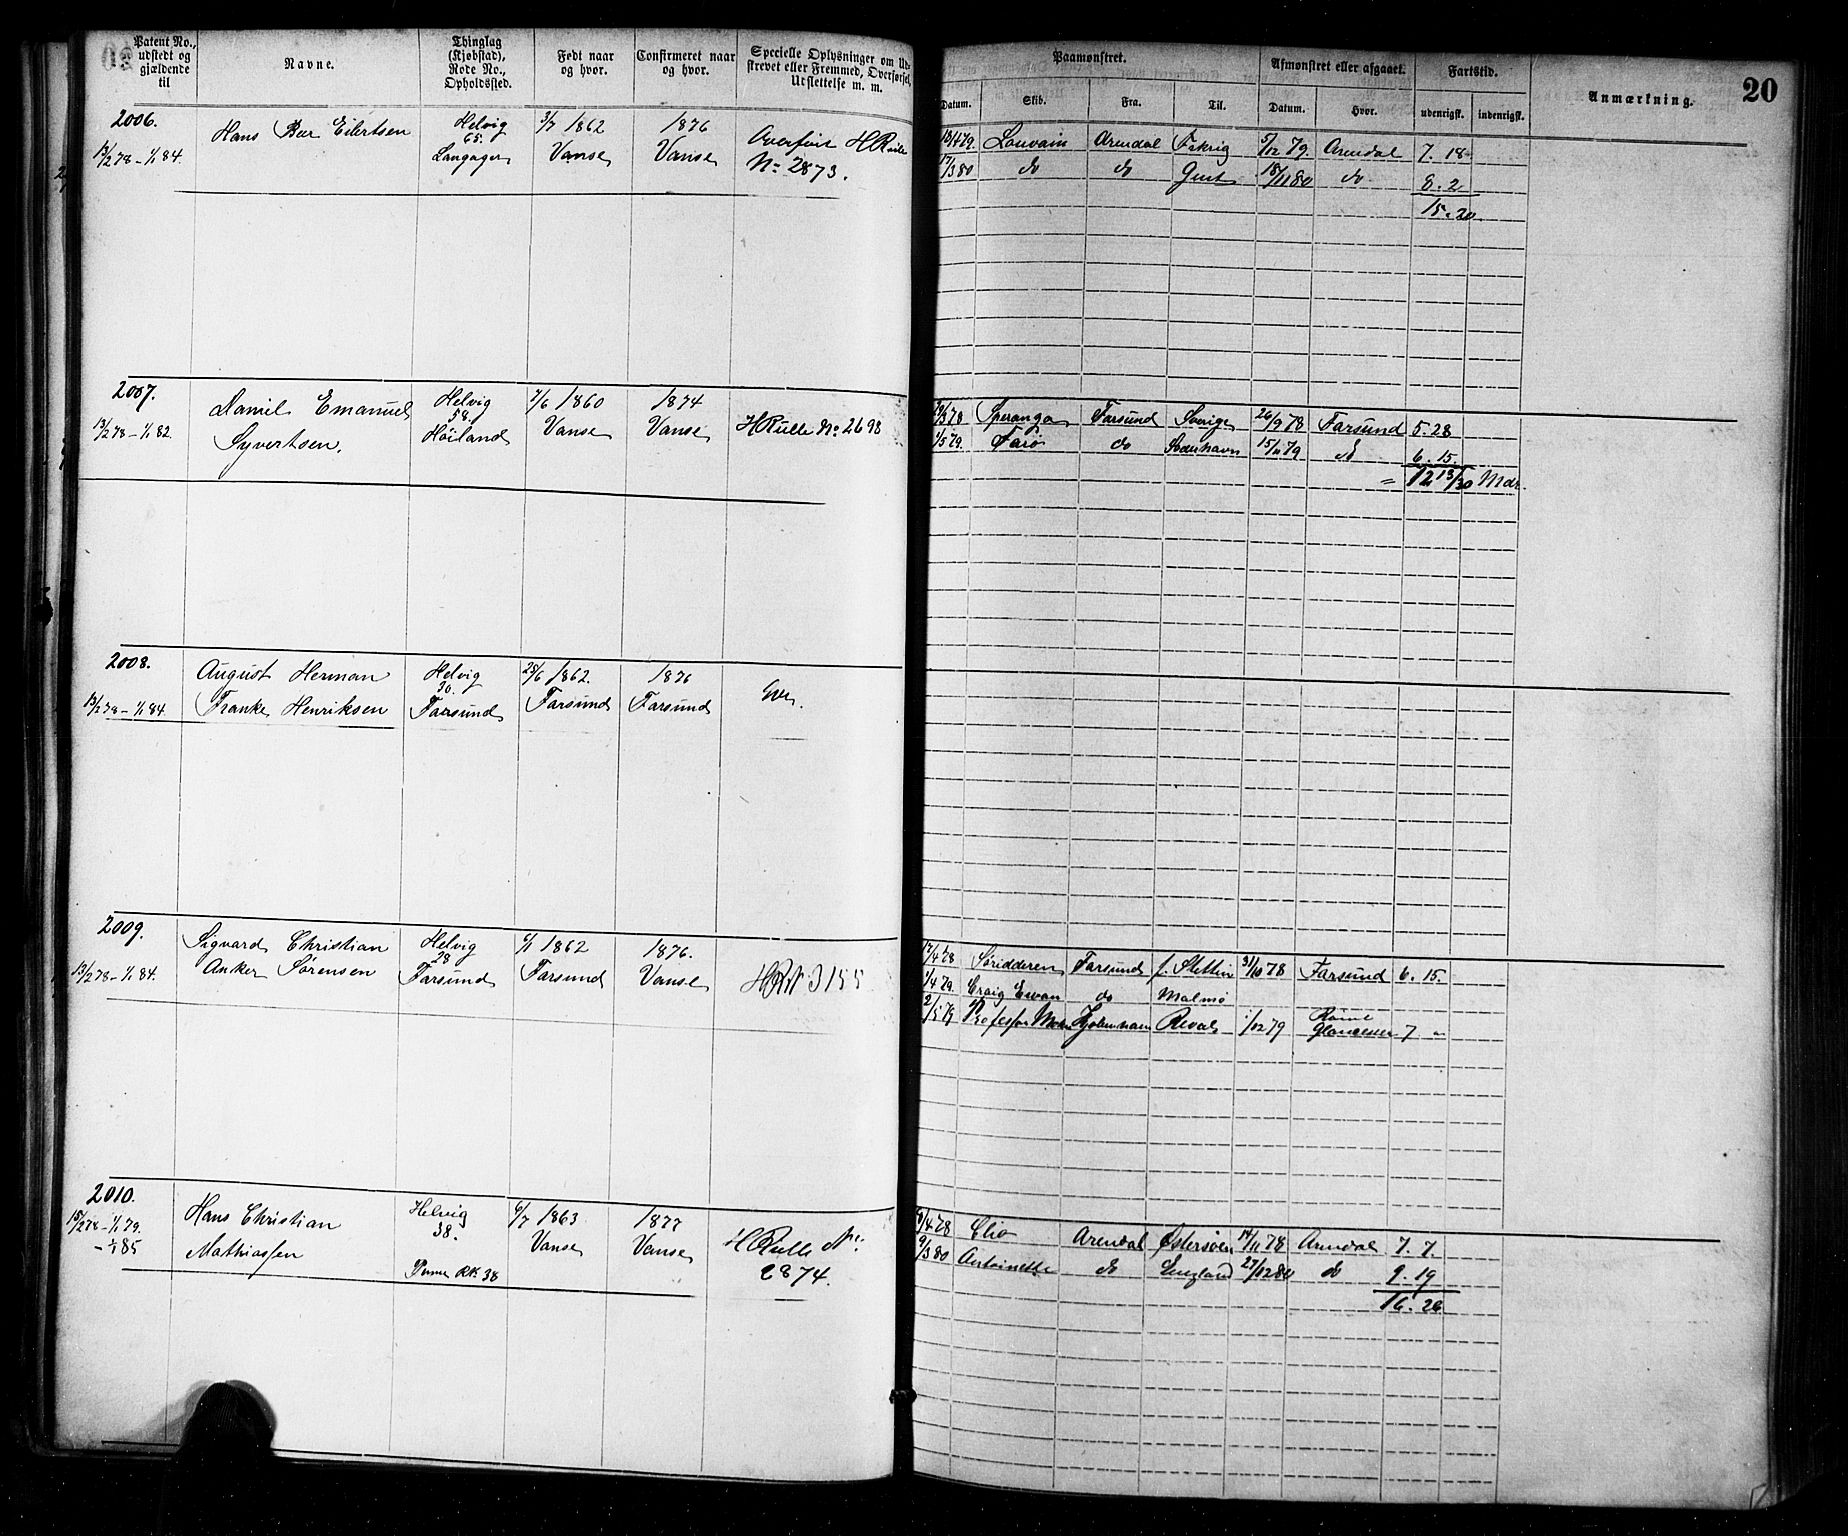 Patent No., udstedt og gjældende til
Navne.
Thinglag (Kjøbstad), Rode No., Opholdssted.
Født naar og hvor.
Confirmeret naar og hvor.
Specielle Oplysninger om Ud-
skrevet eller Fremmed, Overførsel,
Udslettelse m. m.
Paamønstret.
Datum. Skib. Fra. Til.
Afmønstret eller afgaaet.
Datum. Hvor.
Fartstid.
udenrigsk. indenrigsk.
Anmærkning.
20
2006.
13/2 78 – 1/1 84.
Hans Eilertsen
Helvig
65.
Langager
3/7 1862
Vanse
1876
Vanse
Overført H Rulle
No 2873.
18/4 79. Louvain Arendal 5/12 79. Arendal 7. 18
17/3 80 do do Gent 18/11 80 do 8. 2
15. 20
2007.
13/2 78 – 1/1 82.
Daniel Emanuel
Syvertsen.
Helvig
58.
Høiland
7/6 1860
Vanse
1874
Vanse
H Rulle No 2698
Speranza Farsund Sverige 26/9 78 Farsund 5. 28
1/5 79. Farø do 15/11 79 do 6. 15.
= 12 13/30 Mdr.
2008.
13/2 78 – 1/1 84.
August Herman
Franke Henriksen
Helvig
30.
Farsund
28/6 1862.
Farsund
1876
Farsund
2009.
13/2 78 – 1/1 84.
Sigvard Christian
Anker Sørensen
Helvig
28
Farsund
6/1 1862
Farsund
1876.
Vanse
HRN 3155
17/4 78 Søridderen Farsund f. Stettin 31/10 78 Farsund 6. 15.
1/4 79. Craig Ewan do Malmø
2/5 79 Professor Kjøbenhavn Reval 1/12 79 Rømt
Gloucester 7 "
2010.
15/2 78 – 1/1 79.
– 1/1 85
Hans Christian
Mathiassen
Helvig
38.
6/7 1863
Vanse
1877
Vanse
H Rulle No:
2874.
8/4 78 Clio Arendal Østersøen 14/11 78 Arendal 7. 7.
9/3 80 Antoinette do England 27/12 80 do 9. 19
16. 26